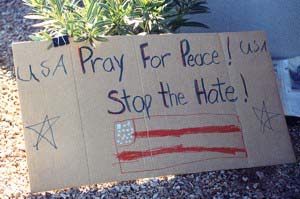 USA Pray For Peace! USA
Stop the Hate!